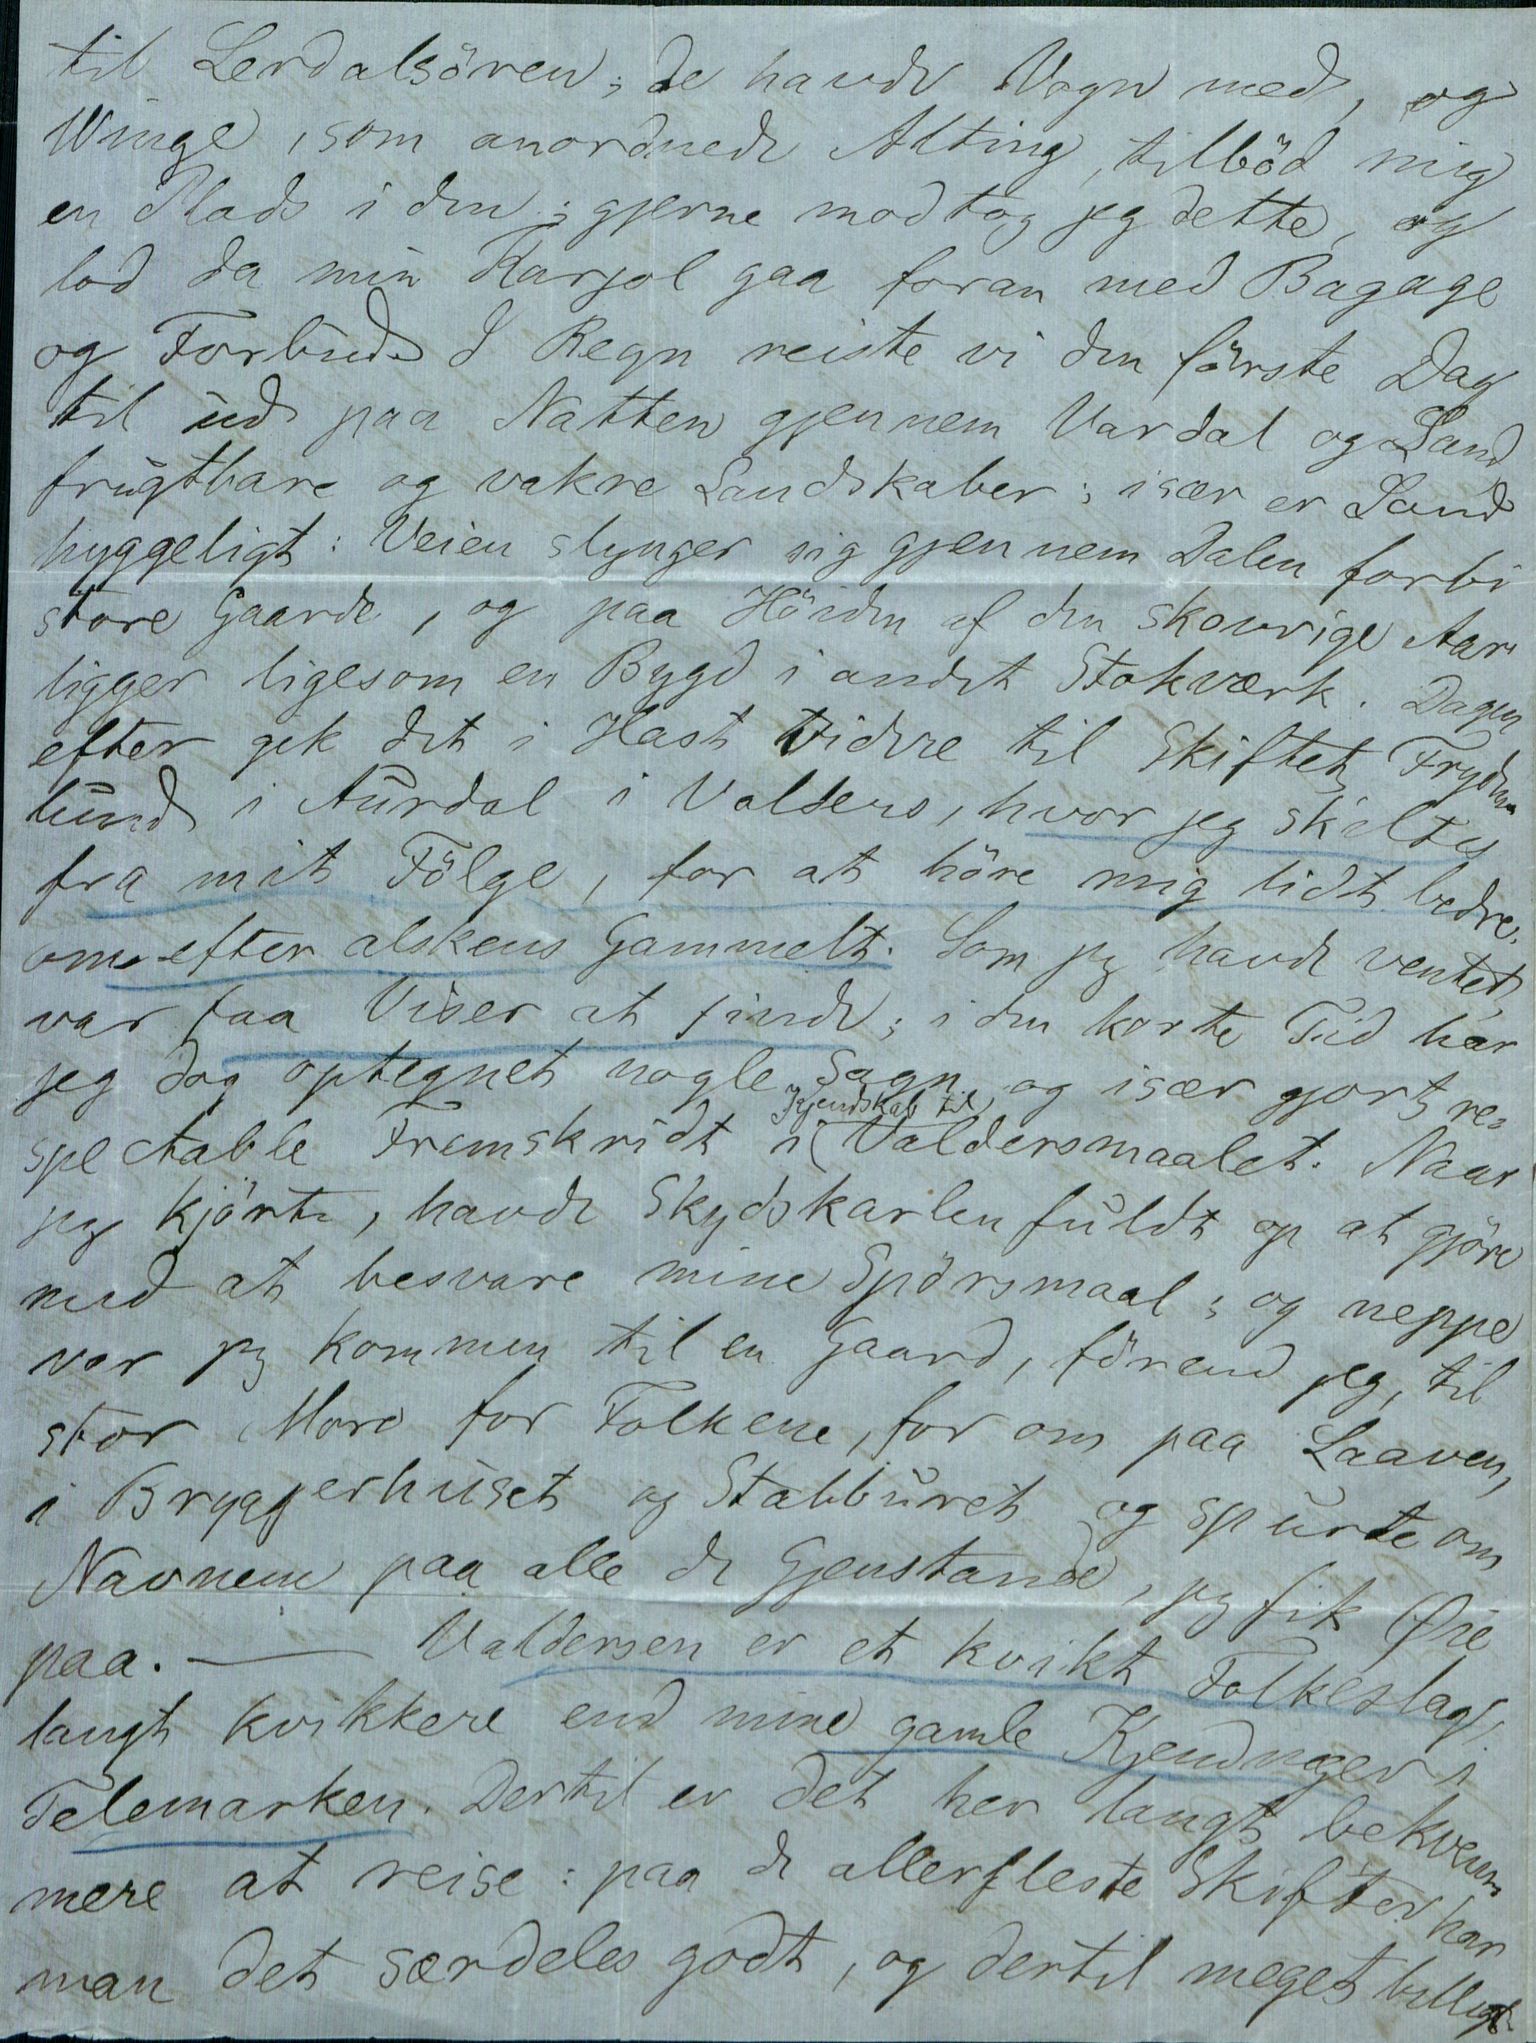 til Lerdalsören; de havde Vogn med, og
Winge, som anordnede Alting, tilböd mig
en Plads i den; gjerne modtog jeg dette, og
lod da min Karjol gaa foran med Bagage
og Forbud. I Regn reiste vi den förste Dag
til ud paa Natten gjennem Vardal og Land,
frugtbare og vakre Landskaber; især er Land
hyggeligt: Veien slynger sig gjennem Dalen forbi
store Gaarde, og paa Höiden af den skovrige Aas
ligger ligesom en Bygd i andet Stokværk. Dagen
efter gik det i Hast vidre til Skiftet Fryden
lund i Aurdal i Valders, hvor jeg skiltes
fra mit Fölge, for at höre mig lidt bedre
om efter alskens Gammelt. Som jeg havde ventet,
var faa Viser at finde; i den korte Tid har
jeg dog optegnet nogle Sagn, og især gjort re-
spectable Fremskridt i Kjendskab til Valdersmaalet. Naar
jeg kjörte, havde Skydskarlen fuldt op at gjöre
med at besvare mine Spörsmaal; og neppe
var jeg kommen til en Gaard, förend jeg, til
stor Moro for Folkene, for om paa Laaven,
i Bryggerhuset og Stabburet og spurte om
Navnene paa alle de Gjenstande, jeg fik Øie
paa. — Valdersen er et kvikt Folkeslag,
langt kvikkere end mine gamle Kjendinger i
Telemarken. Dertil er det her langt bekvem
mere at reise: paa de allerfleste Skifter har
man det særdeles godt, og dertil meget billigt